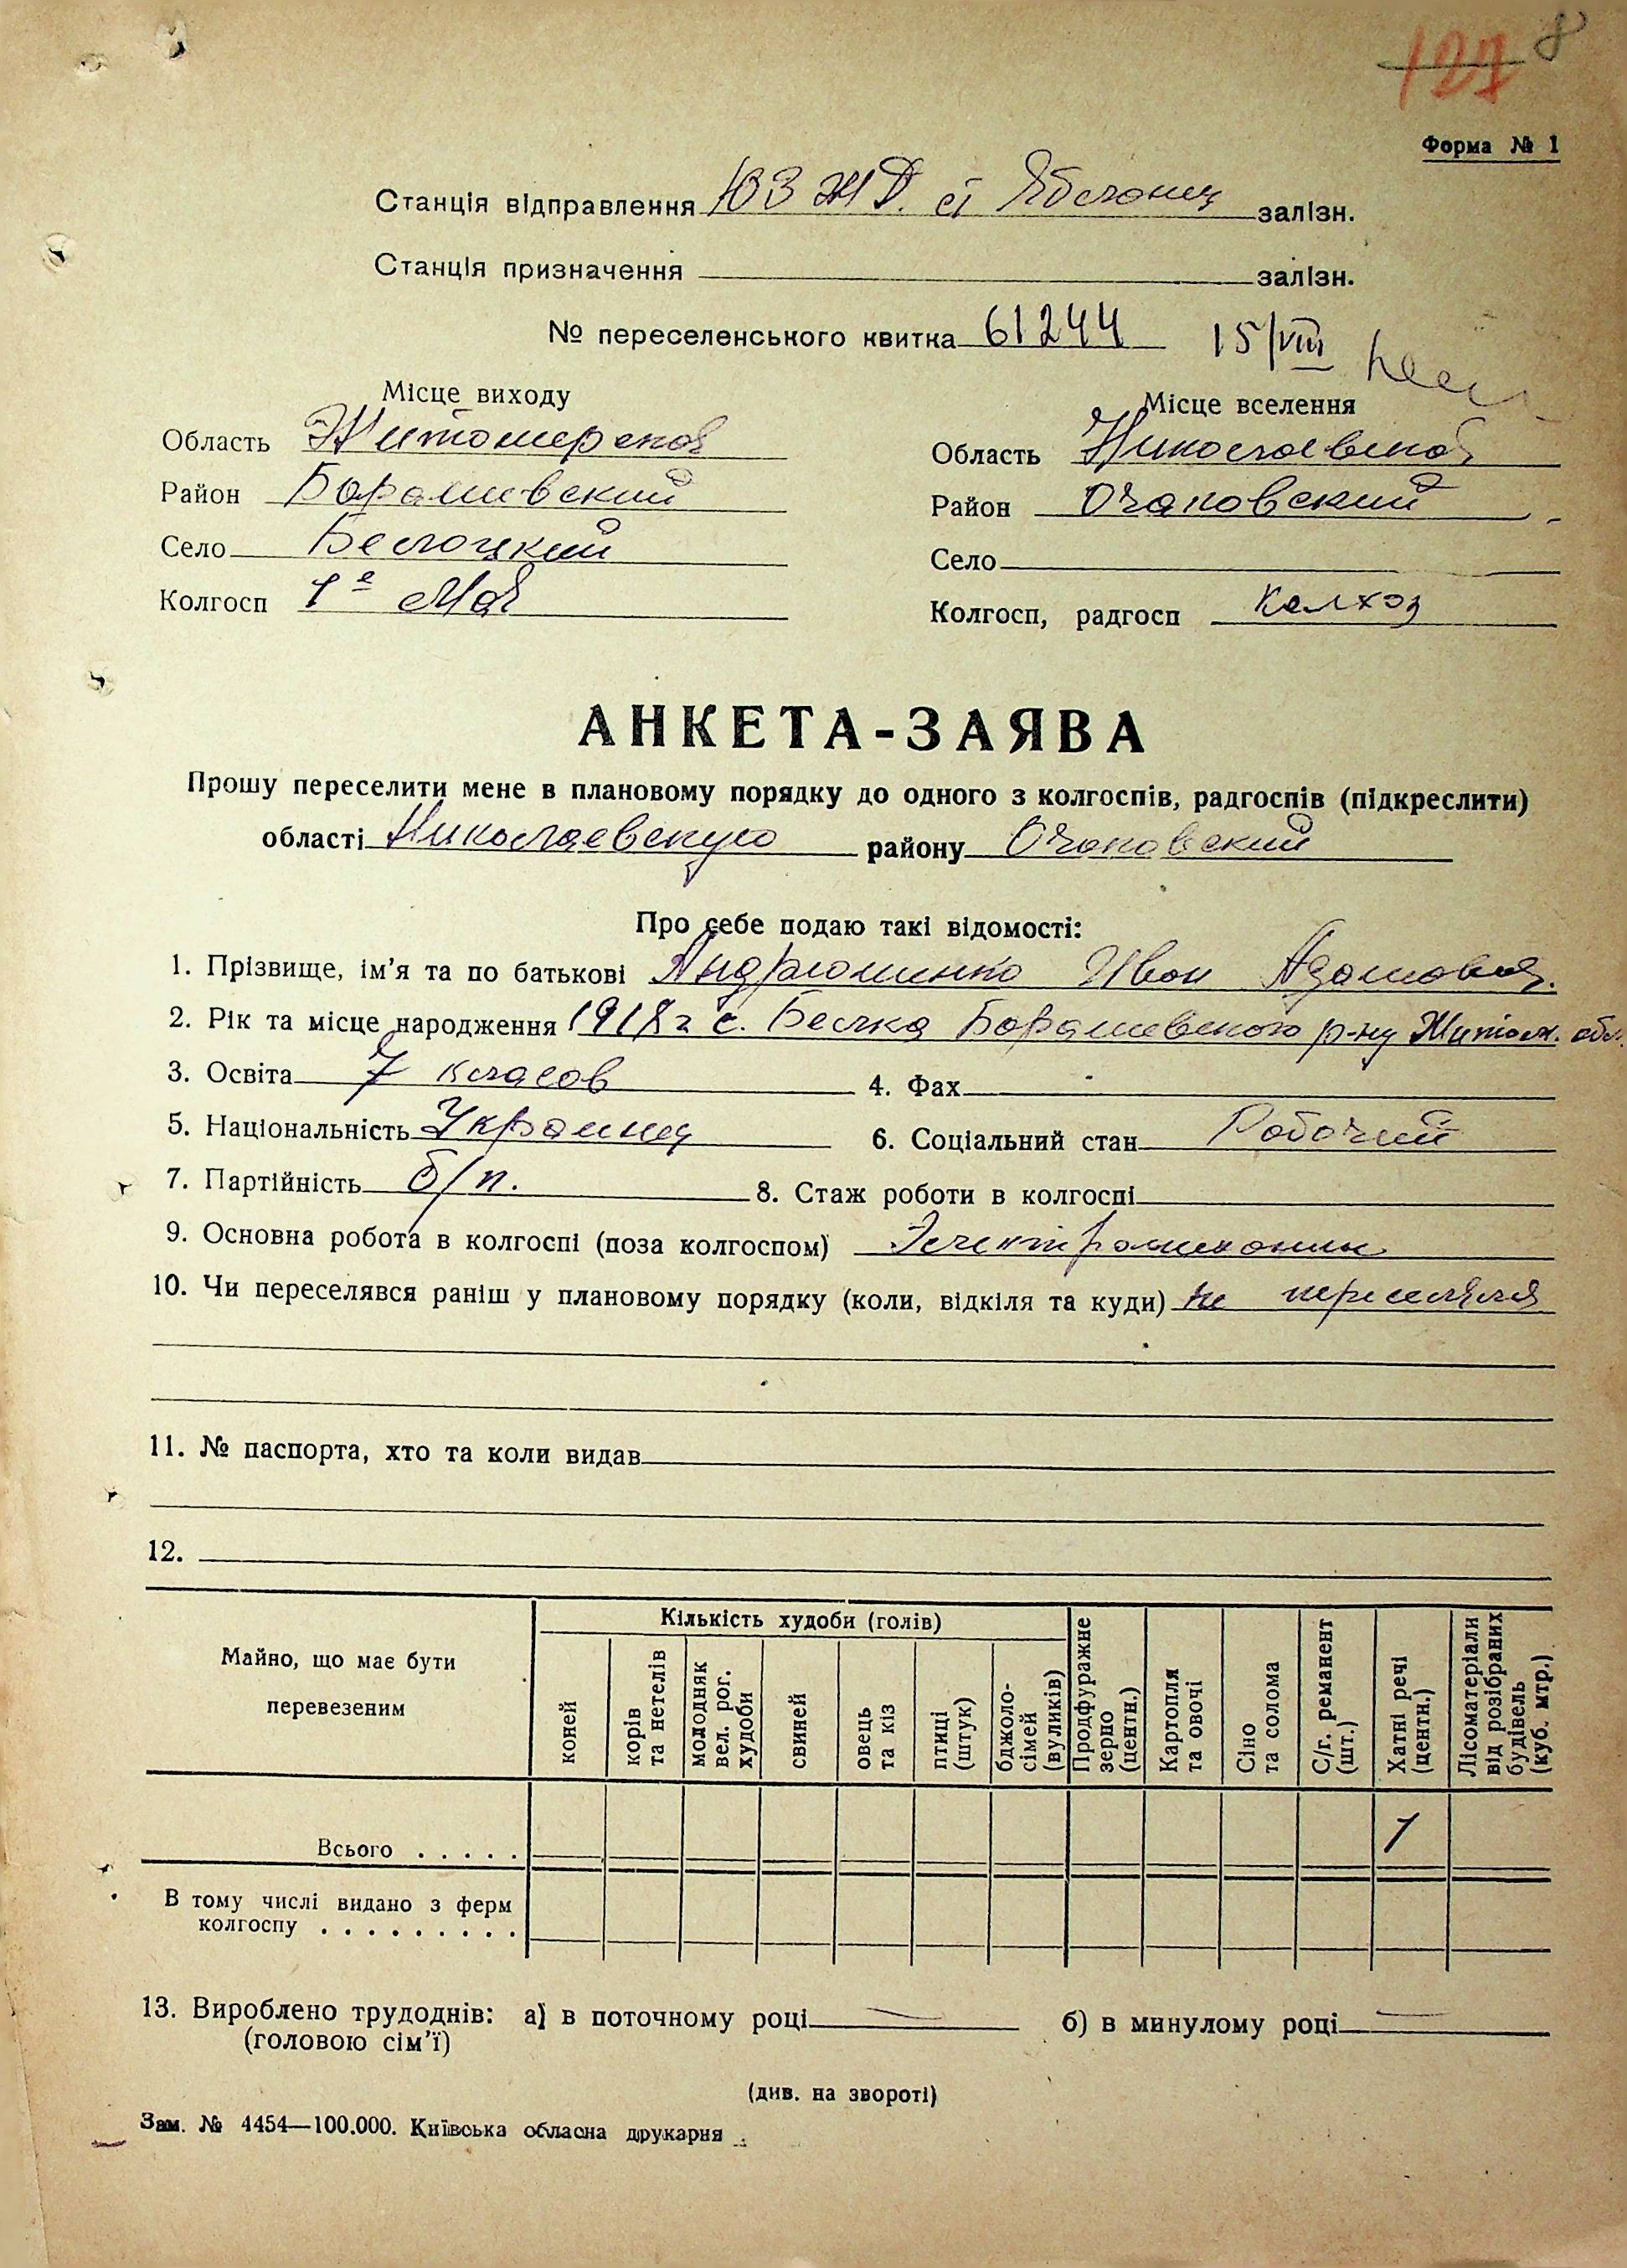 127 8
Форма № 1
Станція відправлення ЮЗ ЖД. ст Яблонец залізн.
Станція призначення залізн.
№ переселенського квитка 61244 15/VIII
Місце виходу Місце вселення
Область Житомирская Область Николаевская
Район Барашевский Район Очаковский
Село Белоцкий Село
Колгосп 1е Мая Колгосп, радгосп Колхоз
АНКЕТА-ЗАЯВА
Прошу переселити мене в плановому порядку до одного з колгоспів, радгоспів (підкреслити)
області Николаевскую району Очаковский
Про себе подаю такі відомості:
1. Прізвище, ім'я та по батькові Андрюшенко Иван Адамович.
2. Рік та місце народження 1918 г с. Белка Барашевского р-ну Житом. обл.
3. Освіта 7 класов 4. Фах
5. Національність Украинец 6. Соціальний стан Рабочий
7. Партійність б/п. 8. Стаж роботи в колгоспі
9. Основна робота в колгоспі (поза колгоспом) Электромеханик
10. Чи переселявся раніш у плановому порядку (коли, відкіля та куди) не переселялся
11. № паспорта, хто та коли видав
12.
Майно, що має бути перевезеним
Кількість худоби (голів)
коней
корів та нетелів
молодняк вел. рог. худоби
свиней
овець та кіз
птиці (штук)
бджоло-сімей (вуликів)
Продфуражне зерно (центн.)
Картопля та овочі
Сіно та солома
С/г. реманент (шт.)
Хатні речі (центн.)
Лісоматеріали від розібраних будівель (куб. мтр.)
Всього . . . . . 1
В тому числі видано з ферм
колгоспу . . . . . . . . .
13. Вироблено трудоднів: а) в поточному році — б) в минулому році —
(головою сім'ї)
(див. на звороті)
Зам. № 4454—100.000. Київська обласна друкарня